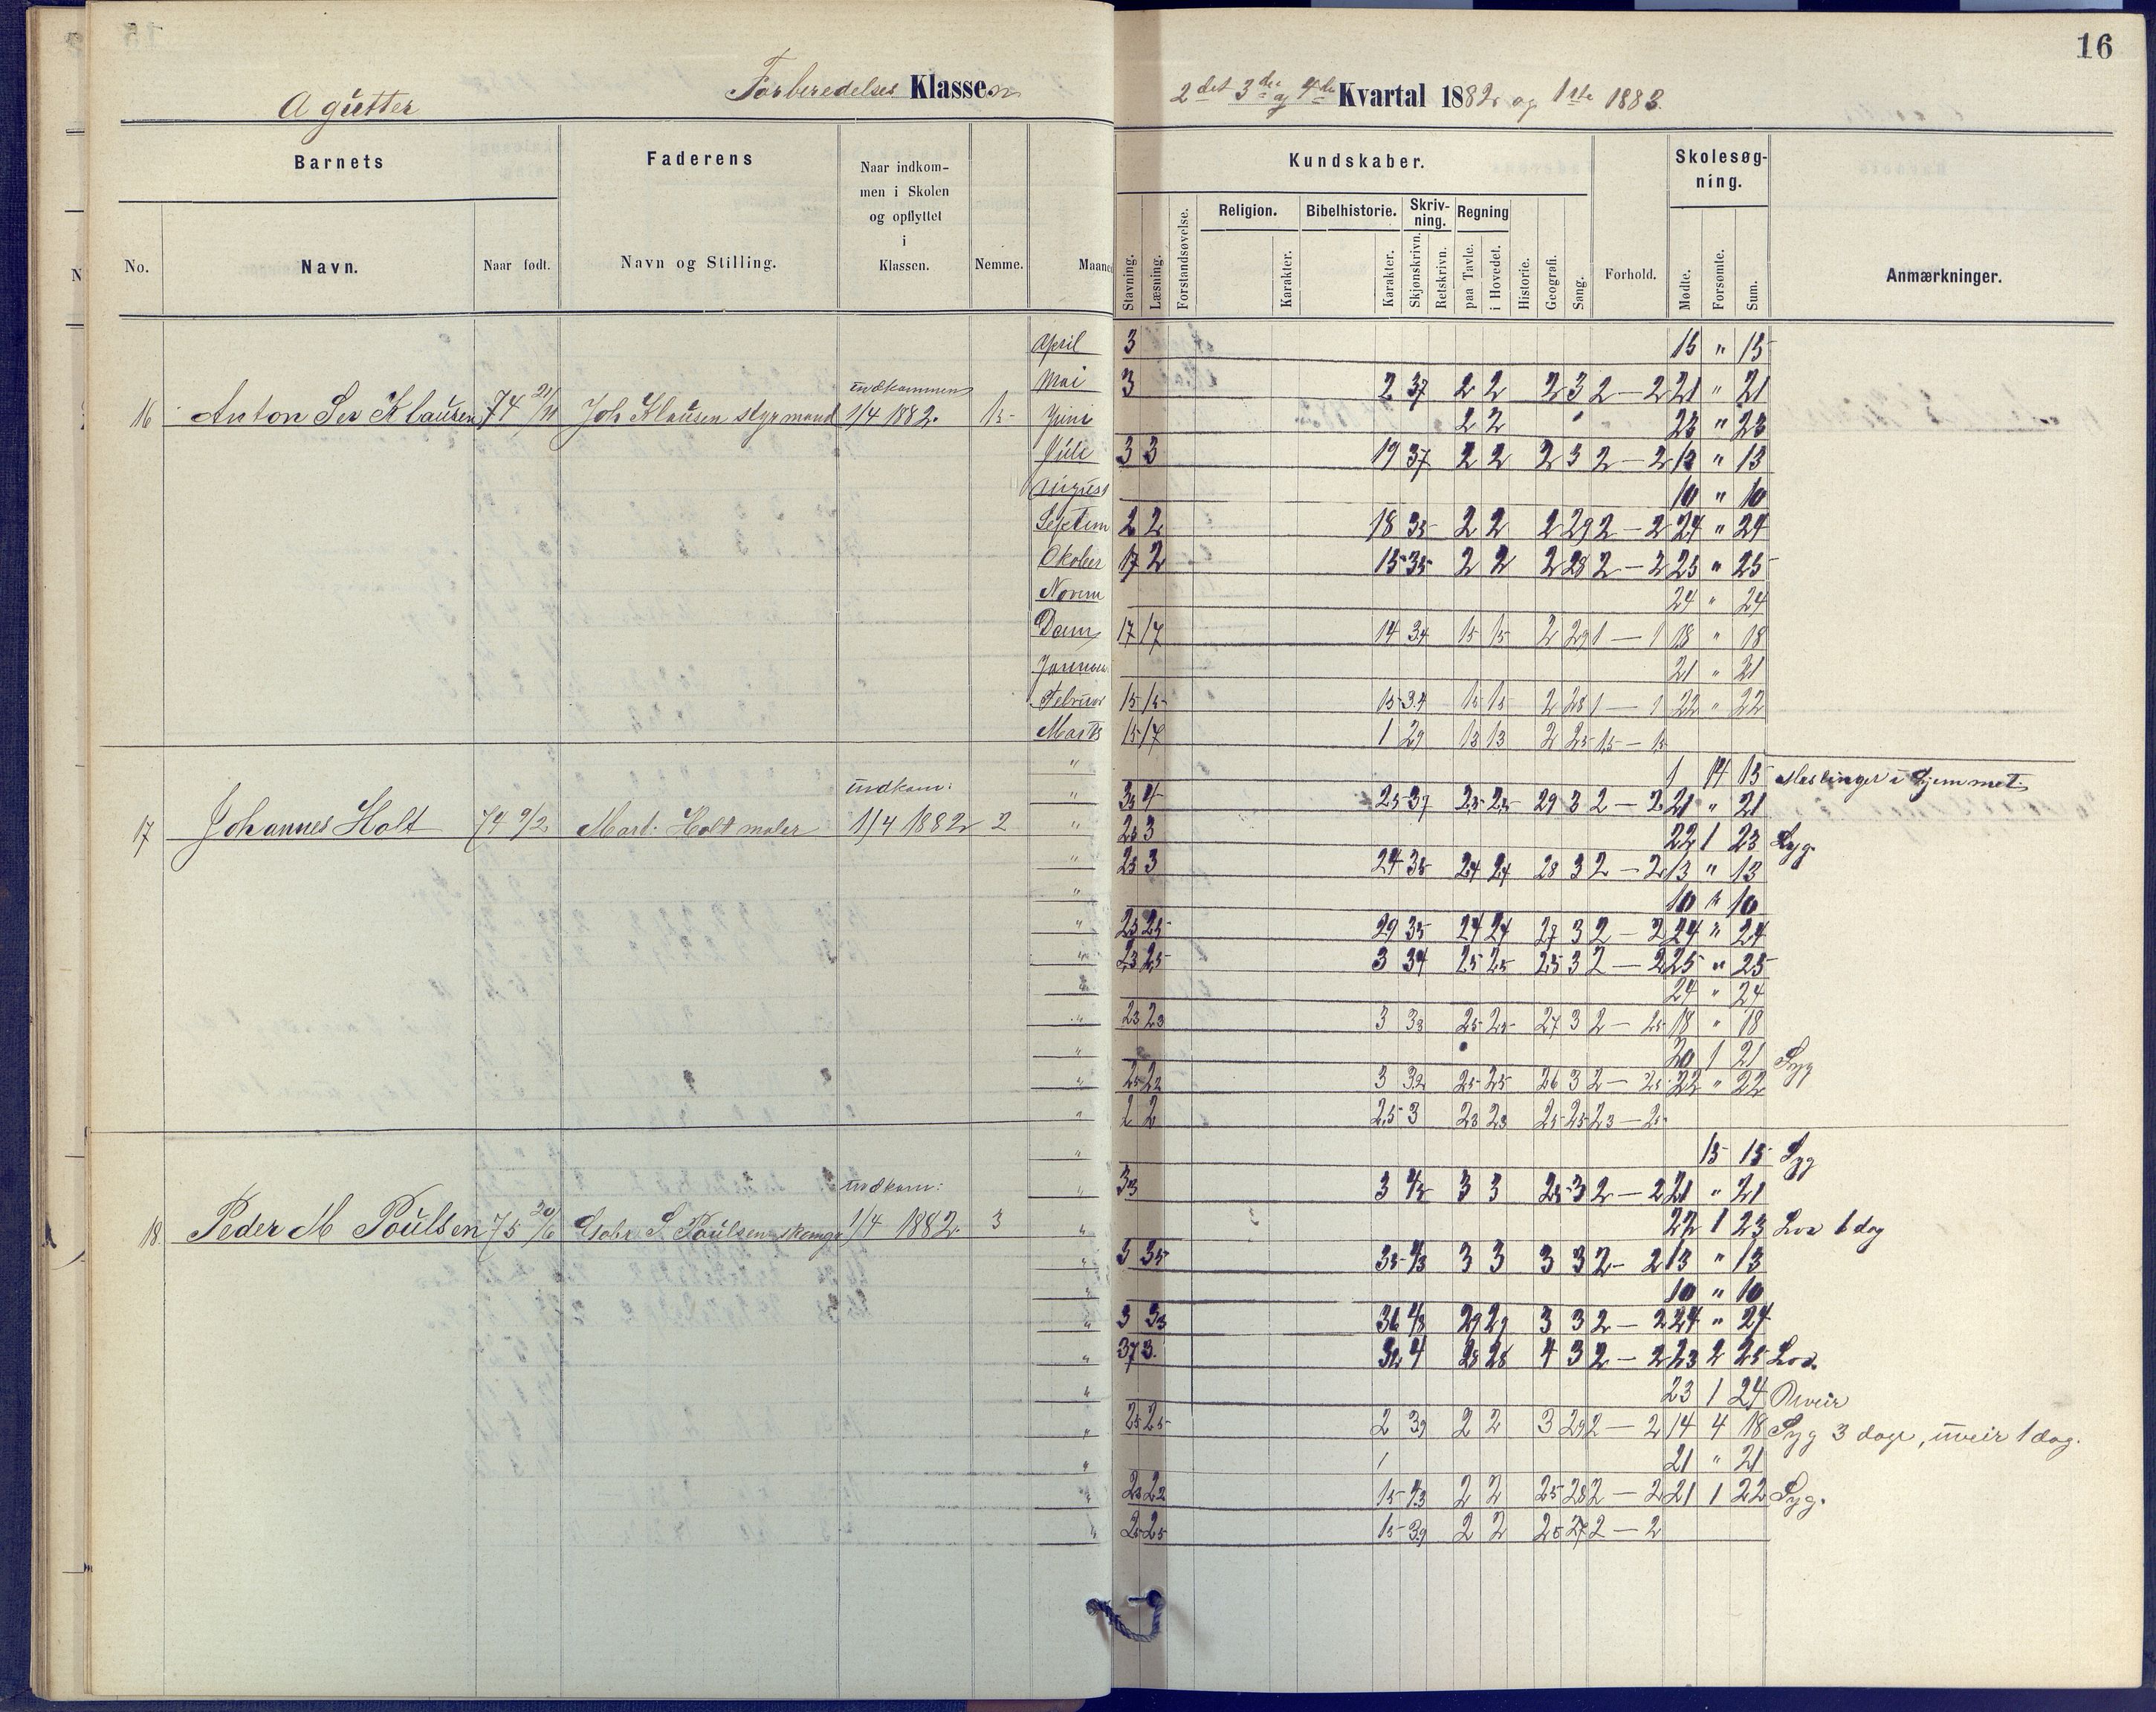 16
A gutter Forberedelses Klassen 2det 3die og 4de Kvartal 1882 og 1ste 1883.
Barnets Faderens Naar indkommen i Skolen og opflyttet i Klassen. Nemme. Kundskaber. Skolesøgning.
No. Navn. Naar født. Navn og Stilling. Maane
Stavning. Læsning. Forstandsøvelse. Religion. Karakter. Bibelhistorie. Karakter. Skrivning. Skjønskrivn. Retskrivn. Regning paa Tavle. i Hovedet. Historie. Geografi. Sang. Forhold. Mødte. Forsømte. Sum. Anmærkninger.
April 3 15 " 15
Mai 3 2 37 2 2 2 3 2 — 2 21 " 21
16 Anton Klausen 74 21/11 Joh Klausen styrmand indkommen 1/4 1882. 15 Juni 2 2 23 " 23
Juli 3 3 19 37 2 2 2 3 2 — 2 13 " 13
August 10 " 10
Septem 2 2 18 35 2 2 2 29 2 — 2 24 " 24
Oktober 17 2 15 35 2 2 2 28 2 — 2 25 " 25
Novem 24 " 24
17 17 14 34 15 15 2 29 1 — 1 18 " 18
21 " 21
Februar 15 15 15 34 15 15 2 28 1 — 1 22 " 22
Marts 15 17 1 29 13 13 2 25 15 — 15
" 1 14 15 Meslinger i Hjemmet
" 25 37 25 25 29 3 2 — 2 21 " 21
17 Johannes Holt 74 9/2 Mart: Holt maler indkom: 1/4 1882 2 " 23 3 22 1 23 Syg.
" 23 3 24 35 24 24 28 3 2 — 2 13 " 13
" 10 " 10
" 25 25 29 35 24 24 27 3 2 — 2 24 " 24
" 23 25 3 34 25 25 25 3 2 — 2 25 " 25
24 " 24
" 23 23 3 33 25 25 27 3 2 — 25 18 " 18
" 20 1 21 Syg
" 25 22 3 32 25 25 26 3 2 — 25 22 " 22
" 2 2 25 3 23 23 25 25 23 — 25
" 15 15 Syg
" 33 3 3 3 25 3 2 — 2 21 " 21
18 Peder M Poulsen 75 20/6 S Poulsen indkom: 1/4 1882. 3 " 22 1 23 Lov 1 dag
" 3 35 35 3 3 3 3 2 — 2 13 " 13
" 10 " 10
" 3 33 36 29 29 3 3 2 — 2 24 " 24
" 37 3 32 4 28 28 4 3 2 — 2 23 2 25 Lov.
" 23 1 24 Uveir
" 25 25 2 39 2 2 3 29 2 — 2 14 4 18 Syg 3 dage, uveir 1 dag.
" 21 " 21
" 23 22 15 43 2 2 25 28 2 — 2 21 1 22 Syg.
" 25 25 15 39 2 2 25 27 2 — 2